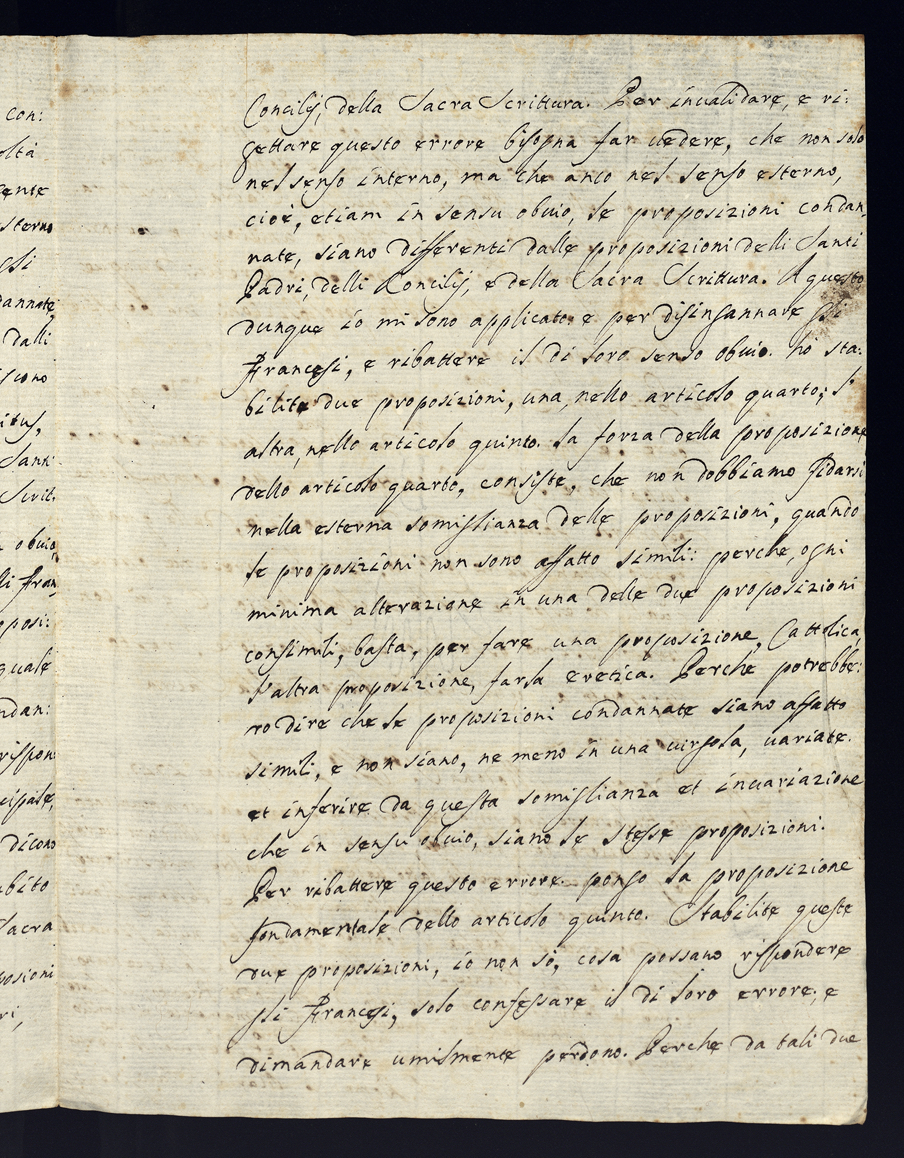 con:
oltà
sente
sterno
gli
dannate,
dalli
iscono
itus,
Santi
Scrit:
obvio,
li Fran,
oposi:
quale
ndan:
rispon:
cipale,
dicono
ubito
Sacra
posioni
ri,
Concilij, della Sacra Scrittura. Per invalidare, e ri:
gettare questo errore bisogna far vedere, che non solo
nel senso interno, ma che anco nel senso esterno,
cioè, etiam in sensu obvio, le proposizioni condan,
nate, siano differenti dalle proposizioni delli Santi
Padri, delli Concilij, e della Sacra Scrittura. A questo
dunque io mi sono applicato: e per disingannare gli
Francesi, e ribattere il di loro senso obvio. hò sta:
bilite due proposizioni, una, nello articolo quarto; l'
altra, nello articolo quinto. la forza della proposizione
dello articolo quarto, consiste, che non dobbiamo fidarsi
nella esterna somiglianza delle proposizioni, quando
le proposizioni non sono affatto simili: perche, ogni
minima alterazione in una delle due proposizioni
consimili, basta, per fare una proposizione, Cattolica,
l'altra proposizione, farla eretica. Perche potrebbe:
ro dire che le proposizioni condannate siano affatto
simili, e non siano, ne meno in una virgola, variate.
et inferire da questa somiglianza et invariazione
che in sensu obvio, siano le stesse proposizioni.
Per ribattere questo errore pongo la proposizione
fondamentale dello articolo quinto. Stabilite queste
due proposizioni, io non sò, cosa possano rispondere
gli Francesi, solo confessare il di loro errore, e
dimandare umilmente perdono. Perche da tali due